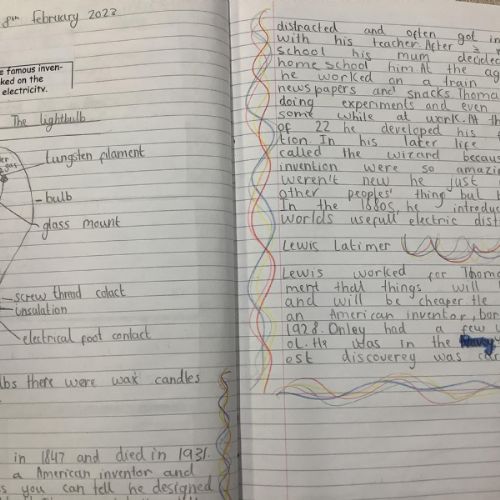 8th february 2023
e famous inven-
ked on the
electricity.
The lightbulb
gas
tungsten filament
bulb
glass mount
screw thred cotact
insalation
electrical foot contact
lbs there were wax candles
in 1847 and died in 1931.
a American inventor and
s you can tell he designed
distracted and often got in
with his teacher. After 3
school his mum decided
home school him. At the ag
he worked on a train
newspapers and snacks. Thoma
doing experiments and even
some while at work. At th
of 22 he developed his
tion. In his later life
called the wizard becaus
invention were so amazi
weren't new he just
other peoples' thing but
In the 1880s, he introdu
worlds usefull electric dist
Lewis Latimer
Lewis worked for Thoma
ment that things will
and will be cheaper. He
an American inventor, bor
1928. Onley had a few
ot. He was in the Navy
est discoverey was car